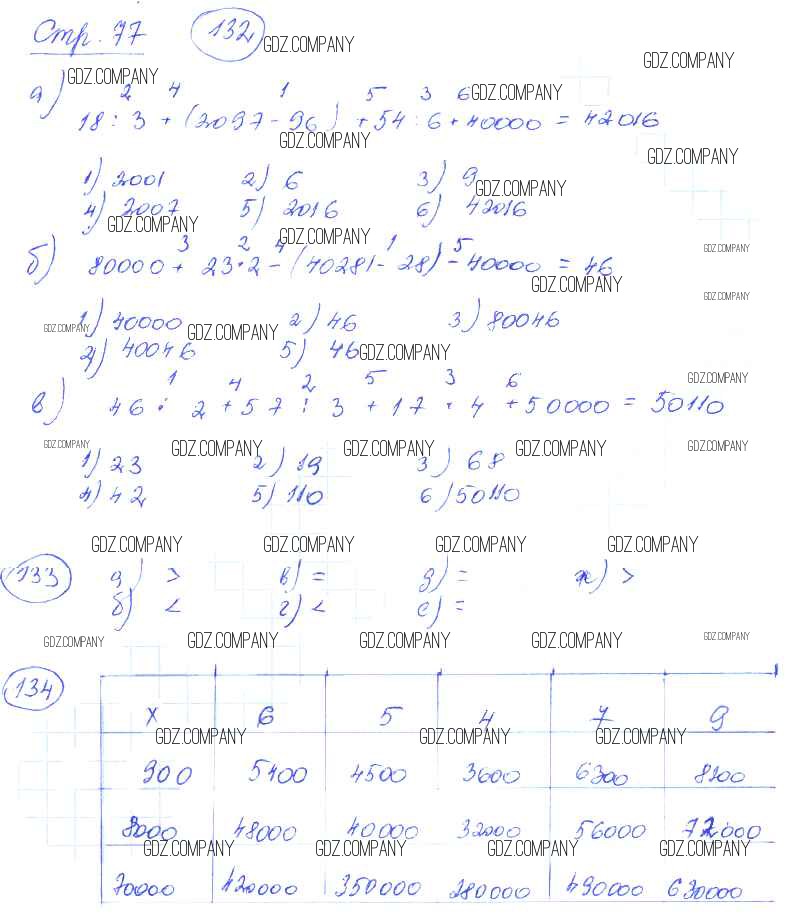 Стр. 77 132 GDZ.COMPANY
GDZ.COMPANY
GDZ.COMPANY
2 4 1 5 3 6 GDZ.COMPANY
а) 18 : 3 + (2097 - 96) + 54 : 6 + 40000 = 42016
GDZ.COMPANY
GDZ.COMPANY
1) 2001 2) 6 3) 9
GDZ.COMPANY
4) 2007 5) 2016 6) 42016
GDZ.COMPANY
GDZ.COMPANY
3 2 4 1 5 GDZ.COMPANY
б) 80000 + 23 · 2 - (40281 - 28) - 40000 = 46
GDZ.COMPANY
GDZ.COMPANY
1) 40000 2) 46 3) 80046
GDZ.COMPANY GDZ.COMPANY
4) 40046 5) 46 GDZ.COMPANY
1 4 2 5 3 6 GDZ.COMPANY
в) 46 : 2 + 57 : 3 + 17 · 4 + 50000 = 50110
GDZ.COMPANY GDZ.COMPANY GDZ.COMPANY GDZ.COMPANY GDZ.COMPANY
1) 23 2) 19 3) 68
4) 42 5) 110 6) 50110
GDZ.COMPANY GDZ.COMPANY GDZ.COMPANY GDZ.COMPANY
133 а) > в) = д) = ж) >
б) < г) < е) =
GDZ.COMPANY GDZ.COMPANY GDZ.COMPANY GDZ.COMPANY GDZ.COMPANY
134
х 6 5 4 7 9
GDZ.COMPANY GDZ.COMPANY GDZ.COMPANY
900 5400 4500 3600 6300 8100
8000 48000 40000 32000 56000 72000
GDZ.COMPANY GDZ.COMPANY GDZ.COMPANY GDZ.COMPANY
70000 420000 350000 280000 490000 630000